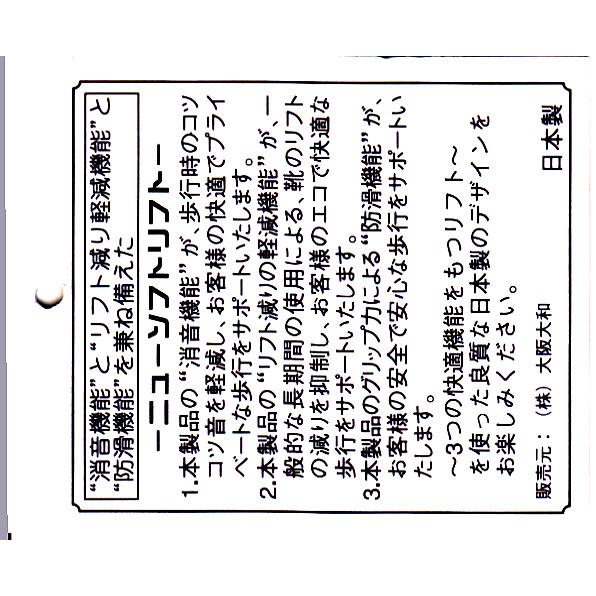 “消音機能”と“リフト減り軽減機能”と
“防滑機能”を兼ね備えた
ーニューソフトリフトー
1.本製品の“消音機能”が、歩行時のコツ
コツ音を軽減し、お客様の快適でプライ
ベートな歩行をサポートいたします。
2.本製品の“リフト減りの軽減機能”が、一
般的な長期間の使用による、靴のリフト
の減りを抑制し、お客様のエコで快適な
歩行をサポートいたします。
3.本製品のグリップ力による“防滑機能”が、
お客様の安全で安心な歩行をサポートい
たします。
～3つの快適機能をもつリフト～
を使った良質な日本製のデザインを
お楽しみください。
日本製
販売元：（株）大阪大和